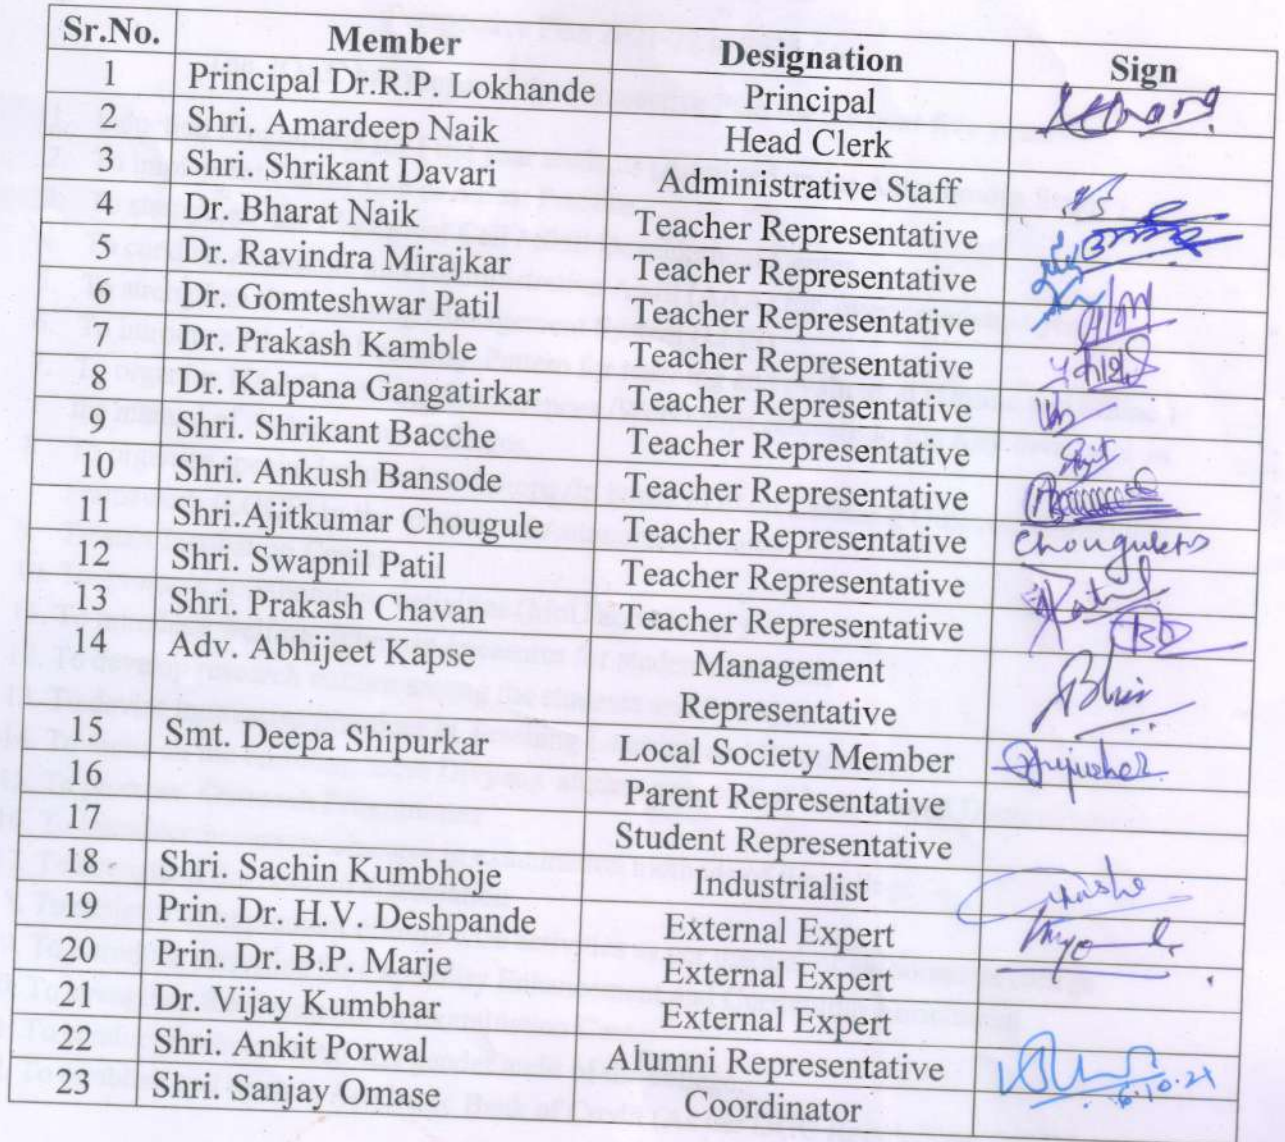 Sr.No. Member Designation Sign
1 Principal Dr.R.P. Lokhande Principal
2 Shri. Amardeep Naik Head Clerk
3 Shri. Shrikant Davari Administrative Staff
4 Dr. Bharat Naik Teacher Representative
5 Dr. Ravindra Mirajkar Teacher Representative
6 Dr. Gomteshwar Patil Teacher Representative
7 Dr. Prakash Kamble Teacher Representative
8 Dr. Kalpana Gangatirkar Teacher Representative
9 Shri. Shrikant Bacche Teacher Representative
10 Shri. Ankush Bansode Teacher Representative
11 Shri.Ajitkumar Chougule Teacher Representative
12 Shri. Swapnil Patil Teacher Representative
13 Shri. Prakash Chavan Teacher Representative
14 Adv. Abhijeet Kapse Management
Representative
15 Smt. Deepa Shipurkar Local Society Member
16 Parent Representative
17 Student Representative
18 Shri. Sachin Kumbhoje Industrialist
19 Prin. Dr. H.V. Deshpande External Expert
20 Prin. Dr. B.P. Marje External Expert
21 Dr. Vijay Kumbhar External Expert
22 Shri. Ankit Porwal Alumni Representative
23 Shri. Sanjay Omase Coordinator 6.10.21